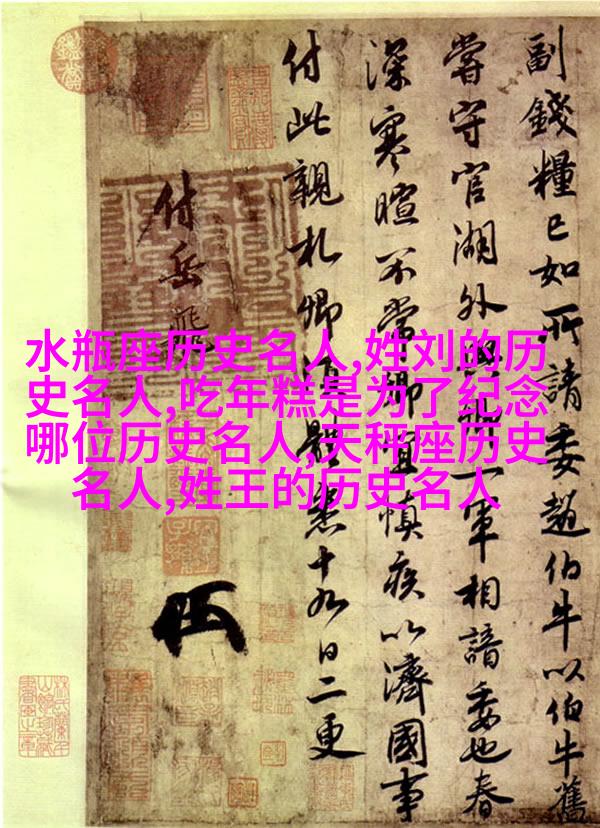 水瓶座历史名人,姓刘的历
史名人,吃年糕是为了纪念
哪位历史名人,天秤座历史
名人,姓王的历史名人
副錢糧已如所請委趙伯牛以伯牛舊
嘗守官湖外與卿一軍相諳委也春
深寒暄不常卿宜慎疾以濟國事
付此親札卿須體悉十九日二更
付岳飛